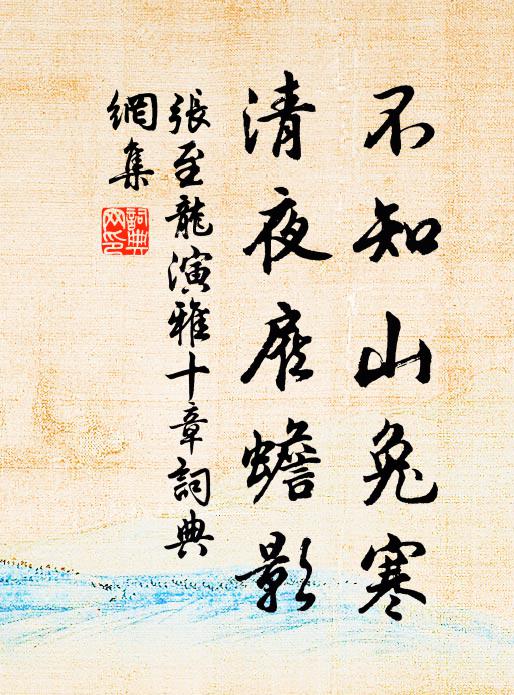 不知山兔寒
清夜扆蟾影
張至龍演雅十章詞典
網集
詞典
网印